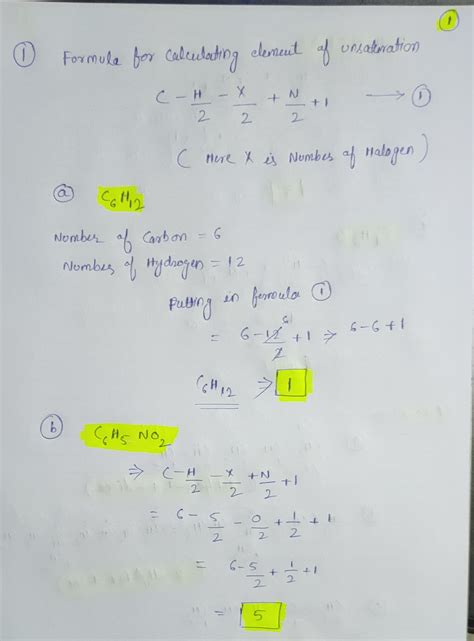 1
① Formula for calculating element of unsaturation
C - H/2 - X/2 + N/2 + 1 → ①
( Here X is Number of Halogen )
ⓐ C₆H₁₂
Number of Carbon = 6
Number of Hydrogen = 12
Putting in formula ①
= 6 - 12/2 6 + 1 ⇒ 6 - 6 + 1
C₆H₁₂ ⇒ 1
ⓑ C₆H₅ NO₂
⇒ C - H/2 - X/2 + N/2 + 1
= 6 - 5/2 - 0/2 + 1/2 + 1
= 6 - 5/2 + 1/2 + 1
= 5